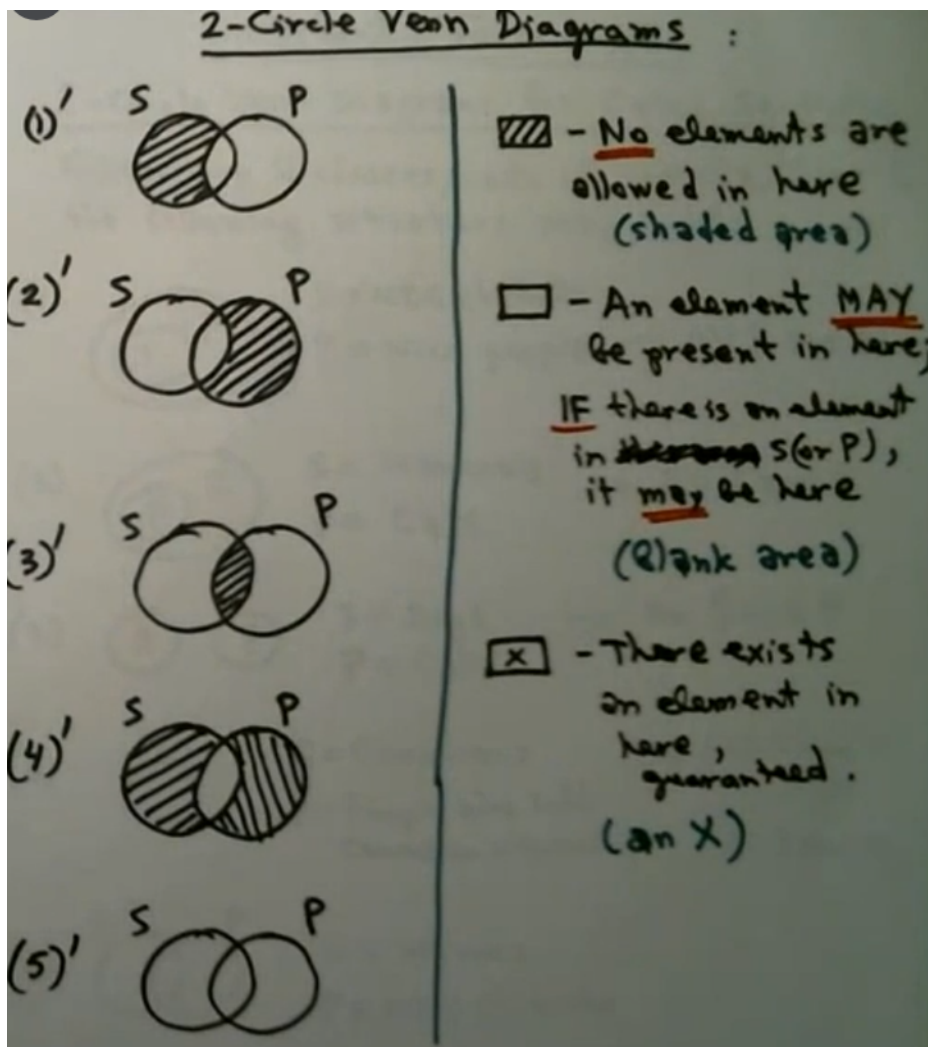 2-Circle Venn Diagrams :
(1)'
S
P
(2)'
S
P
(3)'
S
P
(4)'
S
P
(5)'
S
P
- No elements are
allowed in here
(shaded area)
- An element MAY
be present in here;
IF there is an element
in S (or P),
it may be here
(Blank area)
X - There exists
an element in
here,
guaranteed.
(an X)